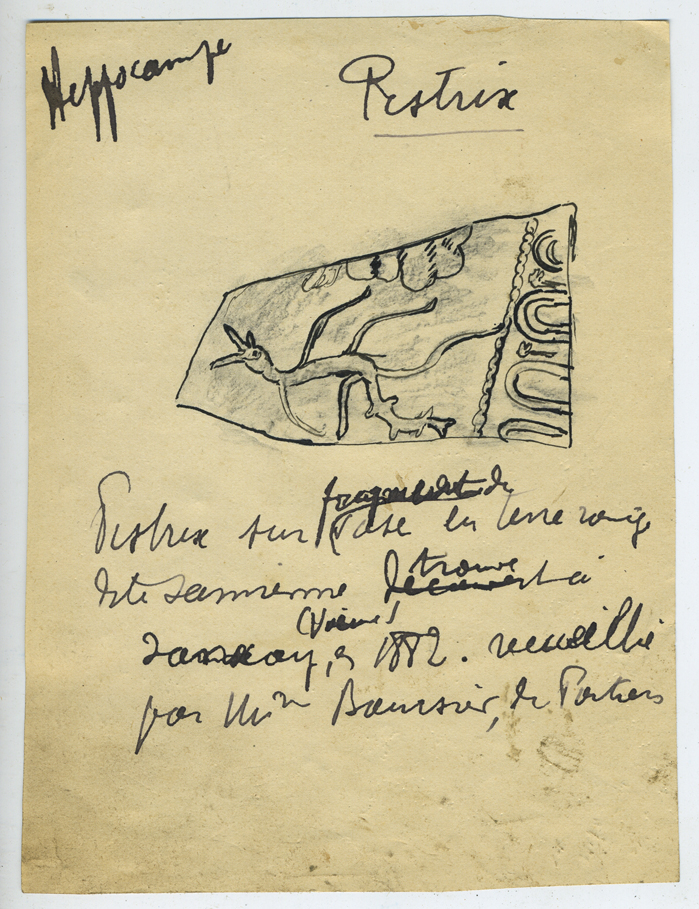 Hippocampe
Pistrix
fragment de
Pistrix sur vase en terre rouge
dite samienne trouvé à
(Vienne)
Sanxay, en 1882. recueilli
par Mm Boursier, de Poitiers